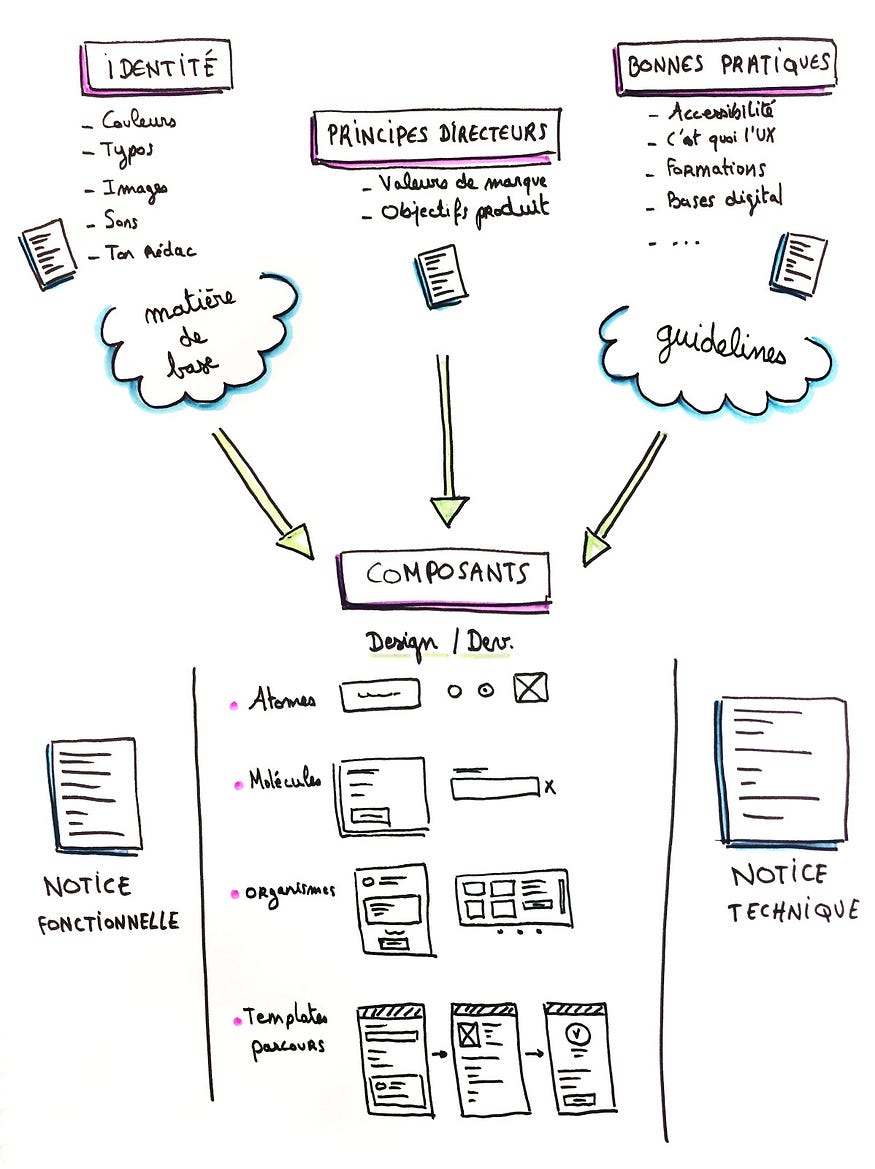 IDENTITÉ
- Couleurs
- Typos
- Images
- Sons
- Ton Rédac
matière
de
base
PRINCIPES DIRECTEURS
- Valeurs de marque
- Objectifs produit
BONNES PRATIQUES
- Accessibilité
- C'est quoi l'UX
- Formations
- Bases digital
- ...
guidelines
COMPOSANTS
Design / Dev.
• Atomes
• Molécules
x
• Organismes
• Templates
parcours
NOTICE
FONCTIONNELLE
NOTICE
TECHNIQUE